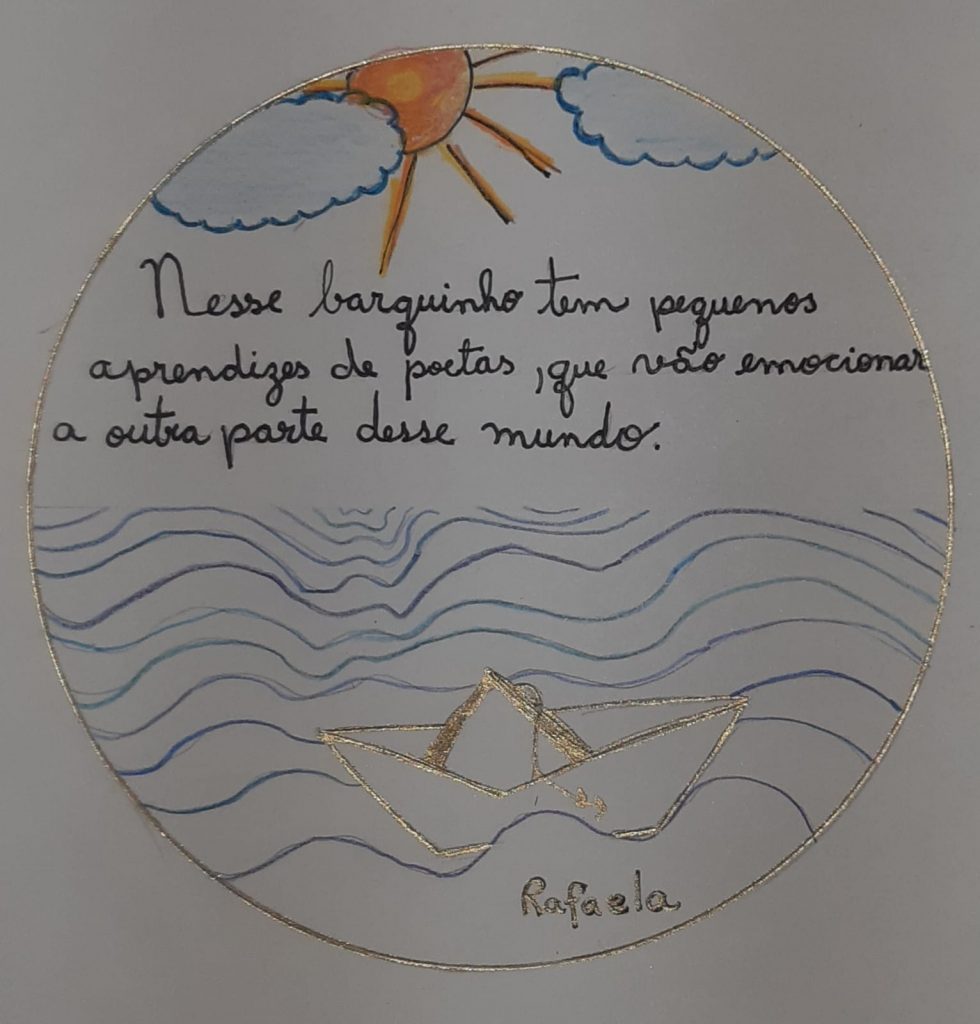 Nesse barquinho tem pequenos
aprendizes de poetas, que vão emocionar
a outra parte desse mundo.
Rafaela